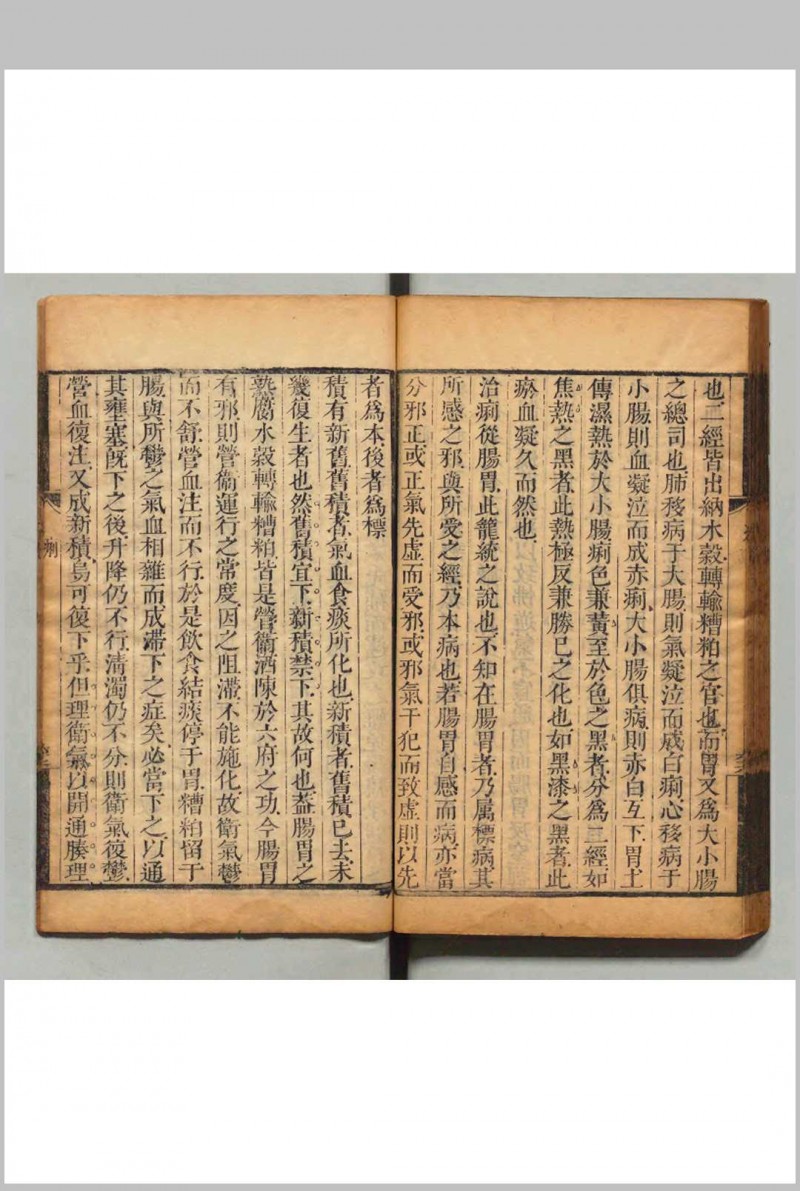 也二經皆出納水穀轉輸糟粕之官也而胃又爲大小腸
之總司也肺移病于大腸則氣凝泣而成白痢心移病于
小腸則血凝泣而成赤痢大小腸俱病則赤白互下胃土
傳濕熱於大小腸痢色兼黃至於色之黑者分爲二經如
焦熱之黑者此熱極反兼勝已之化也如黑漆之黑者此
瘀血凝久而然也
治痢從腸胃此籠統之說也不知在腸胃者乃属標病其
所感之邪與所受之經乃本病也若腸胃自感而病亦當
分邪正或正氣先虛而受邪或邪氣干犯而致虛則以先
者爲本後者爲標
積有新舊舊積者氣血食痰所化也新積者舊積已去未
幾復生者也然舊積宜下新積禁下其故何也蓋腸胃之
熟腐水穀轉輸糟粕皆是營衛洒陳於六府之功今腸胃
有邪則營衛運行之常度因之阻滯不能施化故衛氣鬱
而不舒營血注而不行於是飲食結痰停于胃糟粕留于
腸與所鬱之氣血相雜而成滯下之症矣必當下之以通
其壅塞既下之後升降仍不行清濁仍不分則衛氣復鬱
營血復注又成新積烏可復下乎但理衛氣以開通腠理
痢